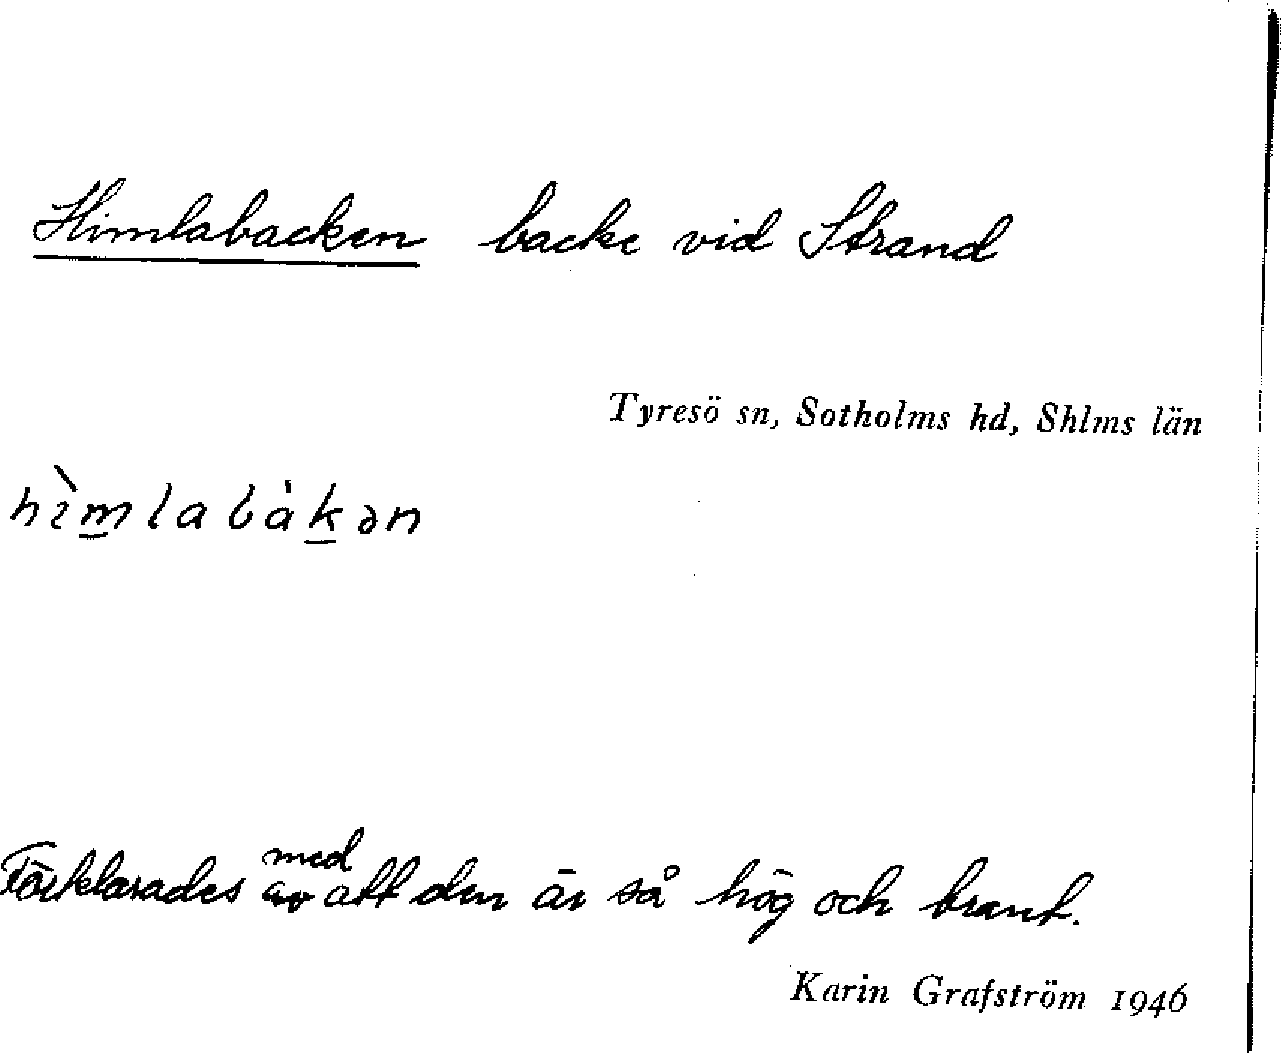 Himlabacken backe vid Strand
Tyresö sn, Sotholms hd, Shlms län
hìmlabàkən
Förklarades av med att den är så hög och brant.
Karin Grafström 1946